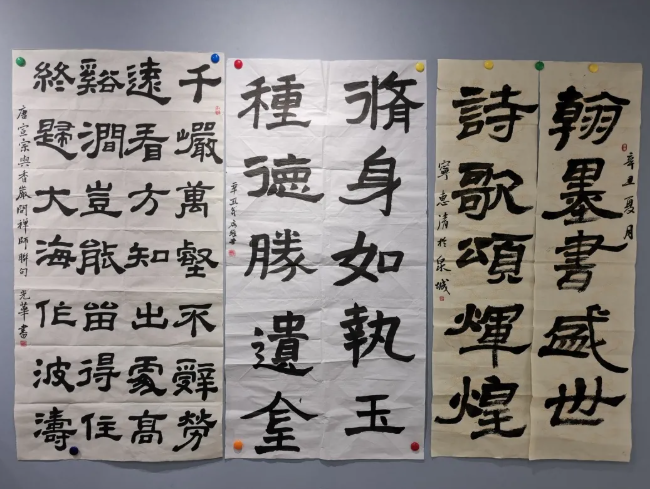 千巖萬壑不辭勞
遠看方知出處高
谿澗豈能留得住
終歸大海作波濤
唐宣宗與香嚴閒禪師聯句 光華書
脩身如執玉
種德勝遺金
辛丑年
辛丑夏月
翰墨書盛世
詩歌頌輝煌
寧惠清於泉城